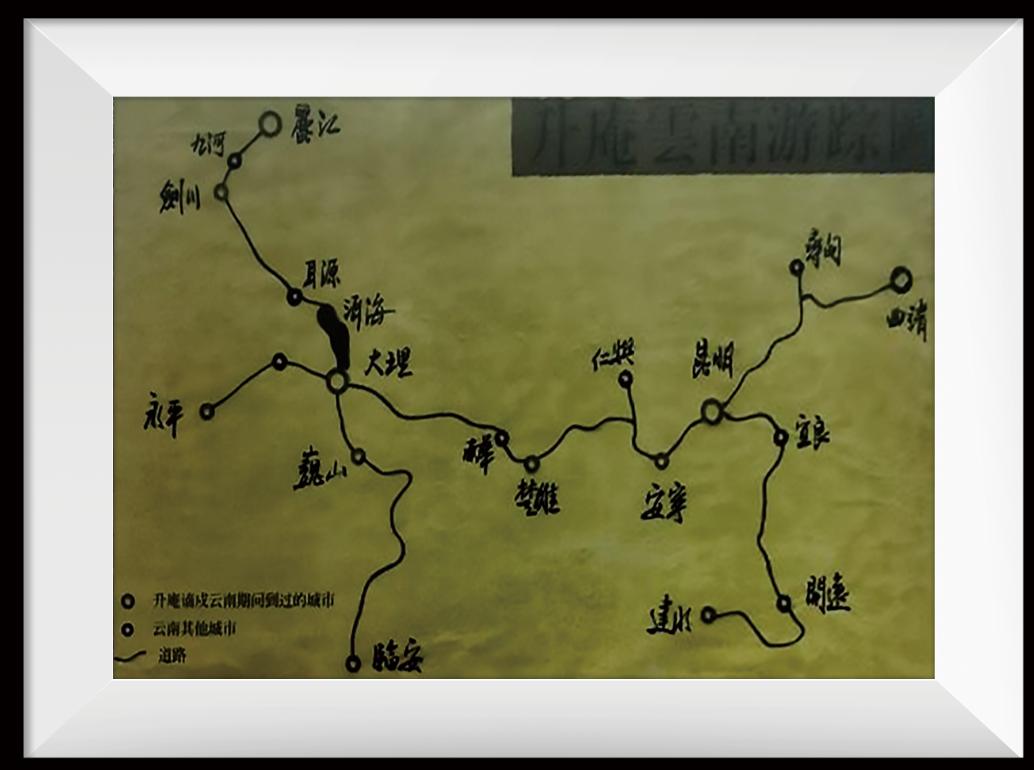 升庵雲南游踪圖
麗江
九河
劍川
尋甸
耳源
曲靖
洱海
大理
仁興
昆明
永平
宜良
南華
巍山
楚雄
安寧
開遠
建水
臨安
升庵谪戍云南期间到过的城市
云南其他城市
道路